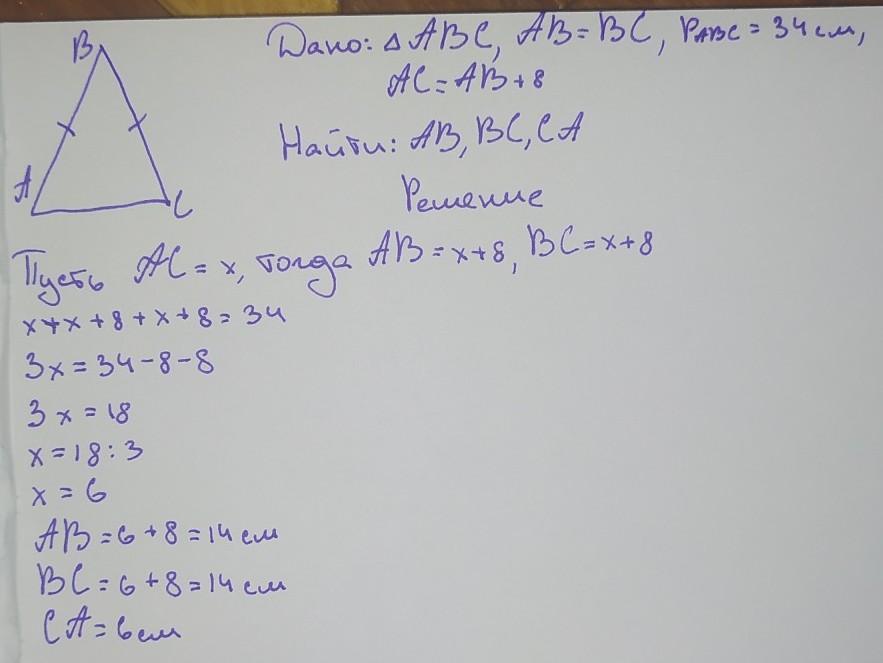 Дано: △ABC, AB=BC, PABC = 34 см,
AC=AB+8
Найти: AB, BC, CA
Решение
B
A
C
Пусть AC = x, тогда AB = x+8, BC = x+8
x+x+8+x+8=34
3x=34-8-8
3x=18
x=18:3
x=6
AB=6+8=14 см
BC=6+8=14 см
CA=6 см